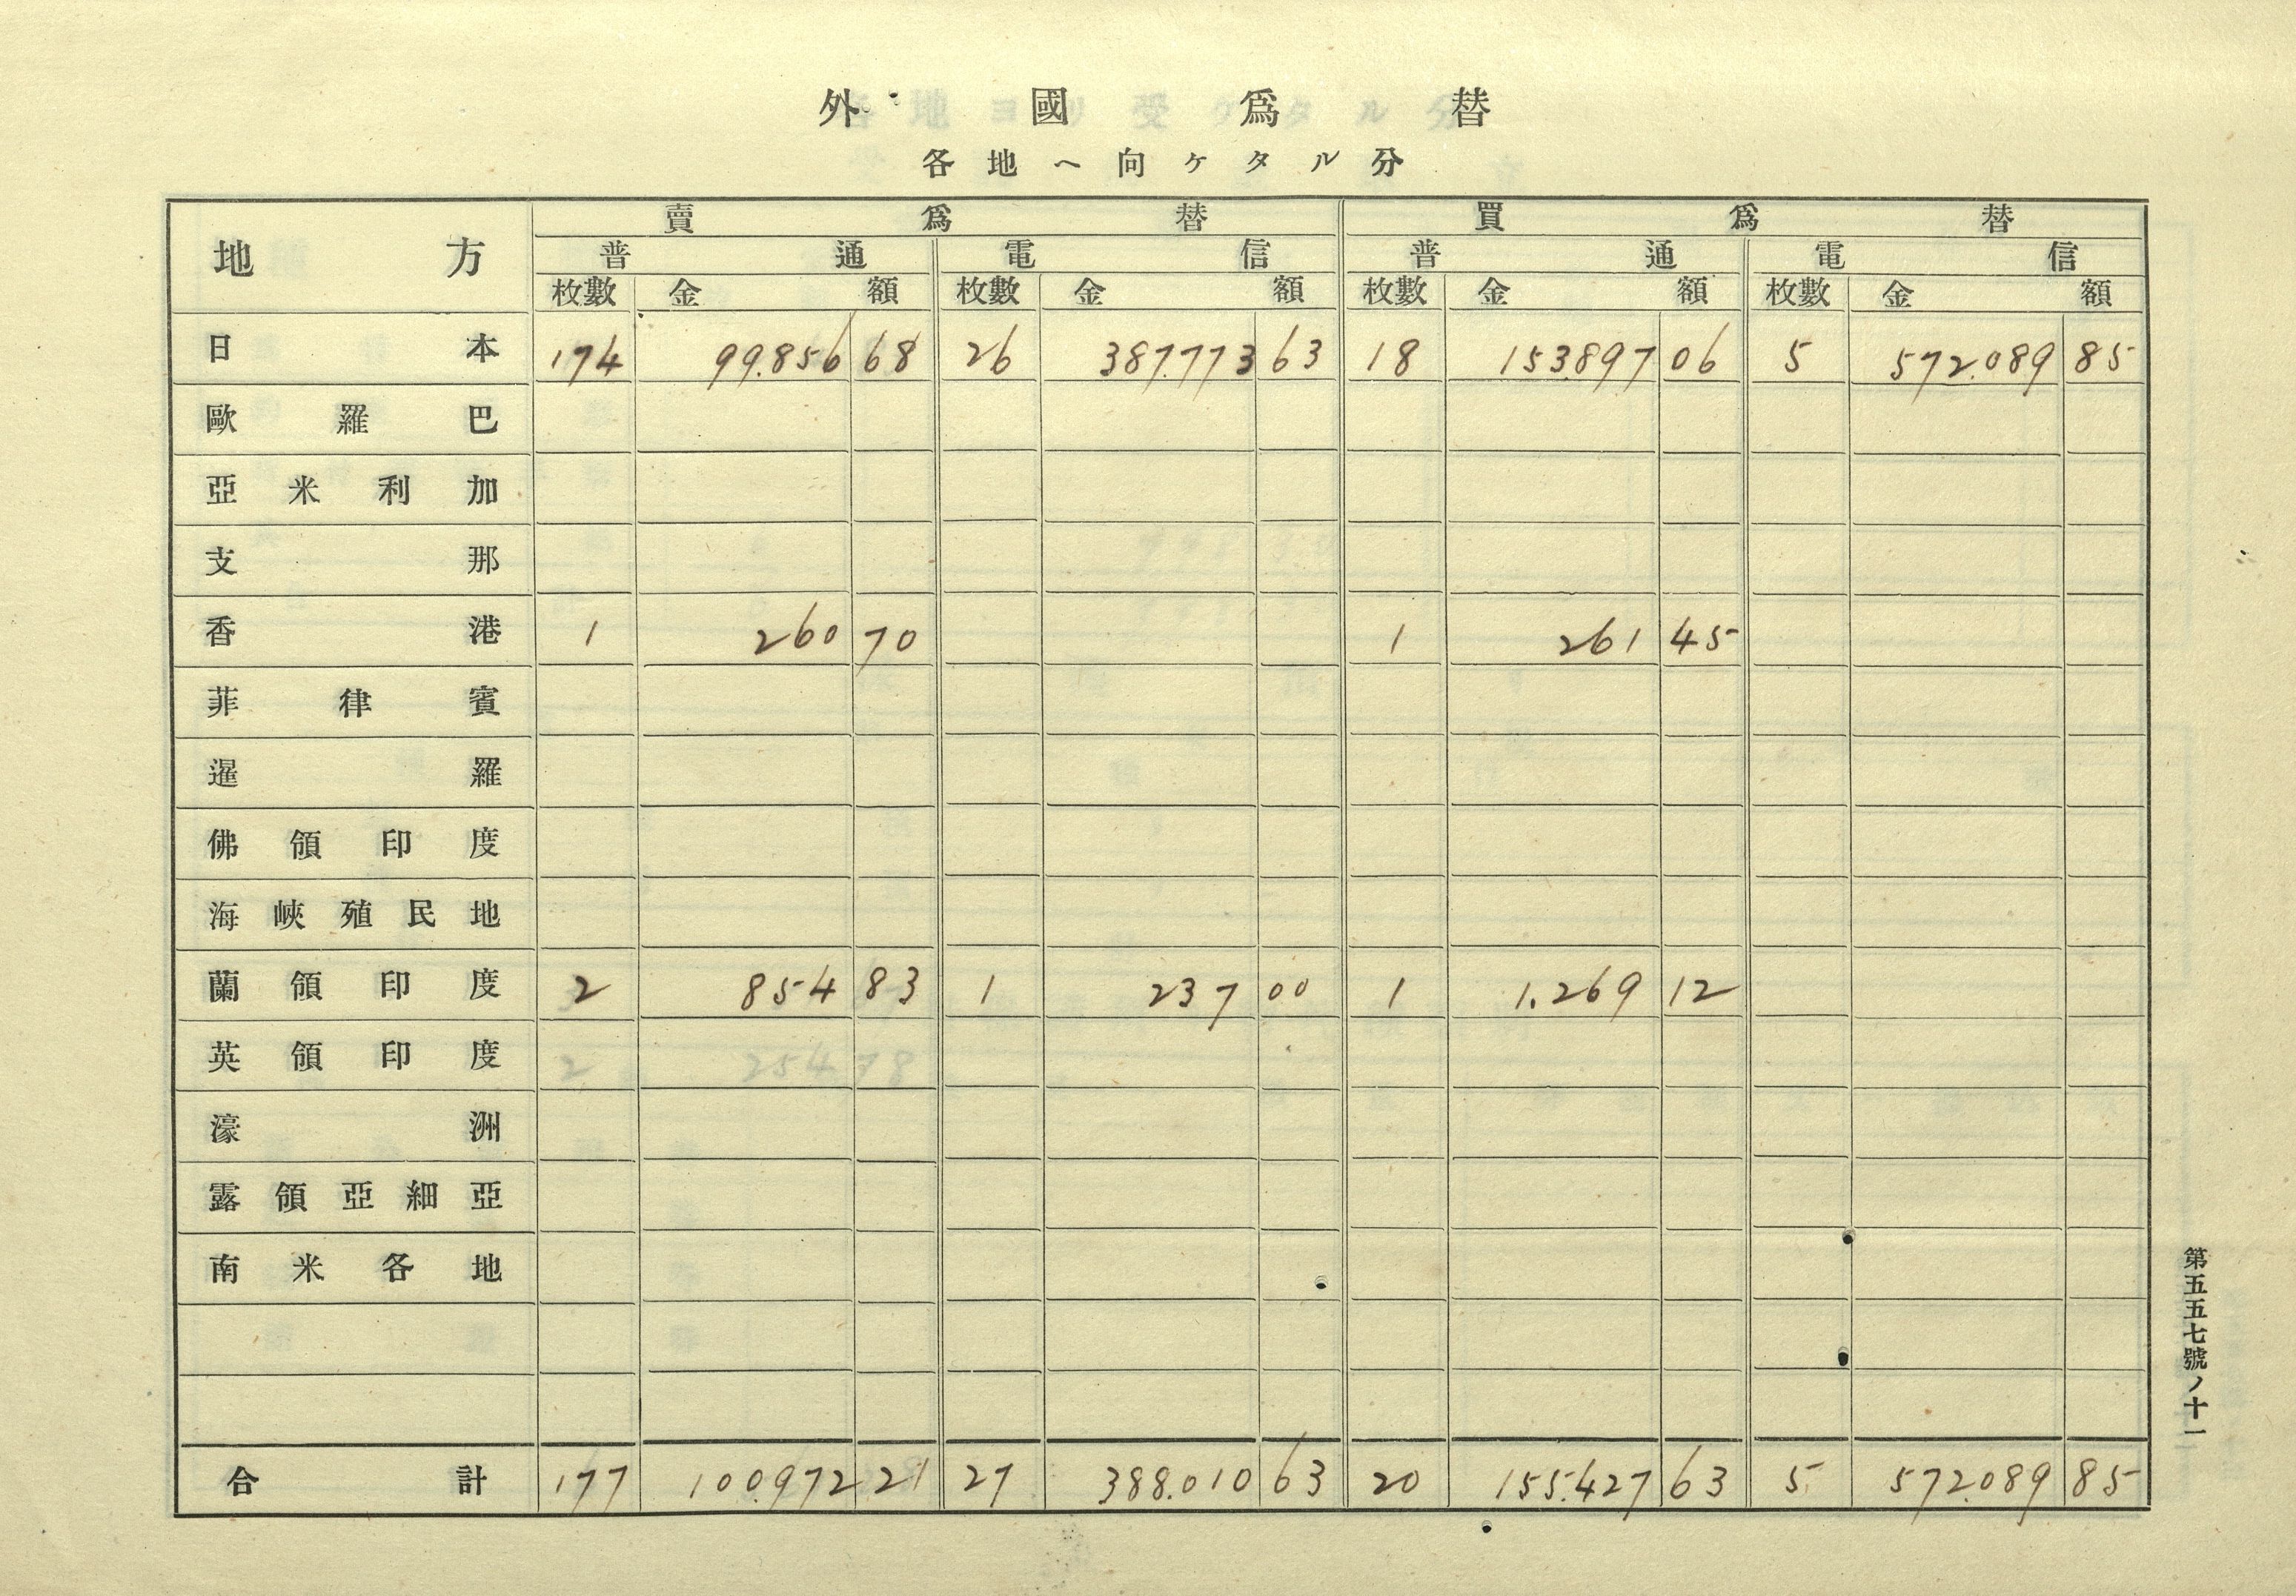 外國爲替
各地ヘ向ケタル分
地方 賣爲替 買爲替
普通 電信 普通 電信
枚數 金額 枚數 金額 枚數 金額 枚數 金額
日本 174 99.856 68 26 387.773 63 18 153.897 06 5 572.089 85
歐羅巴
亞米利加
支那
香港 1 260 70 1 261 45
菲律賓
暹羅
佛領印度
海峽殖民地
蘭領印度 2 854 83 1 237 00 1 1.269 12
英領印度
濠洲
露領亞細亞
南米各地
合計 177 100.972 21 27 388.010 63 20 155.427 63 5 572.089 85
第五五七號ノ十一